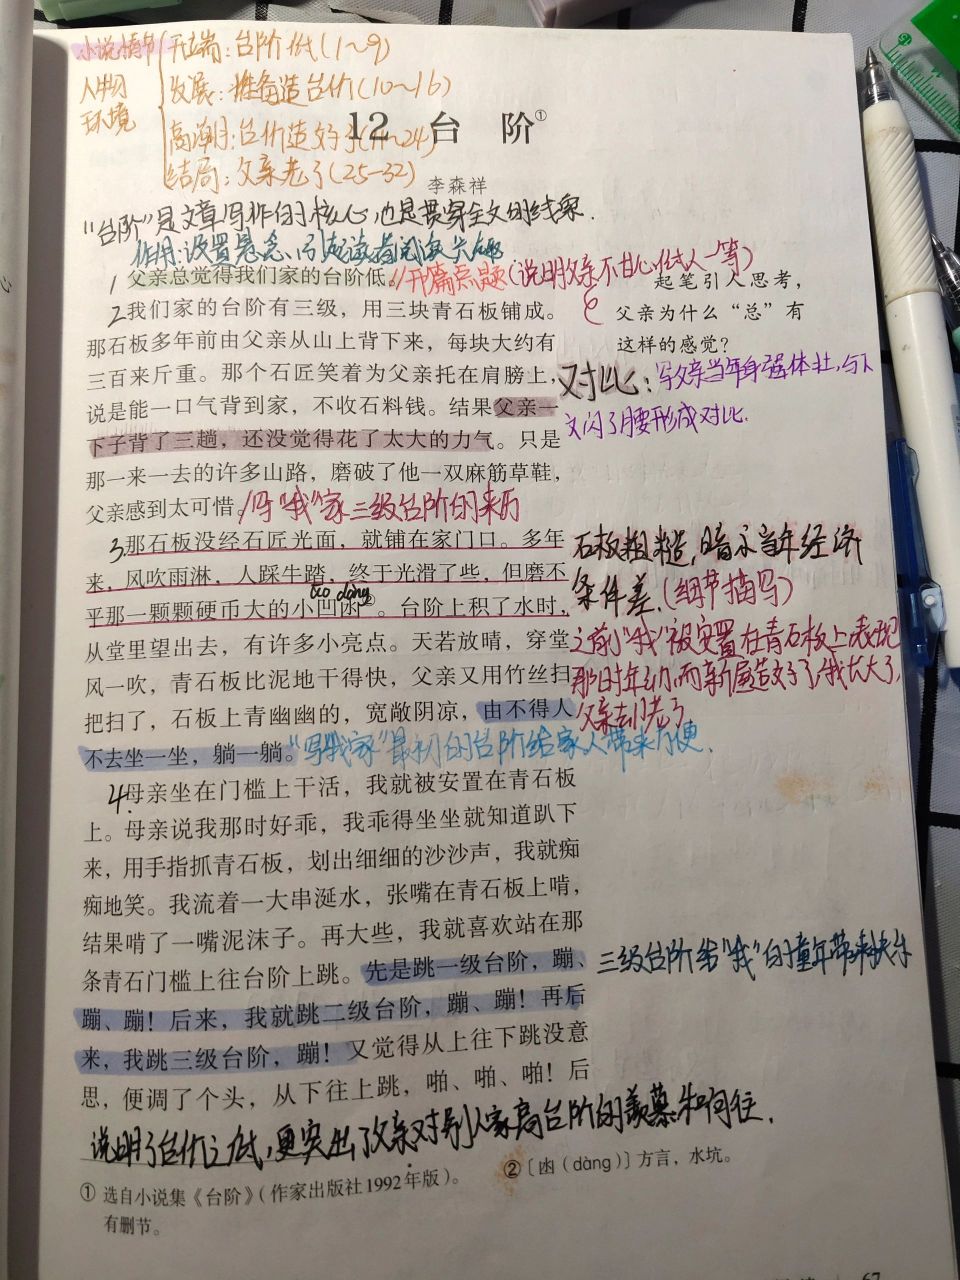 小说情节 开端：台阶低(1～9)
人物 发展：准备造台阶(10～16)
环境
高潮：台阶造好了(17～24)
结局：父亲老了(25-32)
12 台 阶①
李森祥
“台阶”是文章写作的核心,也是贯穿全文的线索.
作用:设置悬念、引起读者阅读兴趣.
1父亲总觉得我们家的台阶低。//开篇点题(说明父亲不甘心低人一等)
起笔引人思考，
父亲为什么“总”有
这样的感觉？
2我们家的台阶有三级，用三块青石板铺成。
那石板多年前由父亲从山上背下来，每块大约有
三百来斤重。那个石匠笑着为父亲托在肩膀上，
说是能一口气背到家，不收石料钱。结果父亲一
下子背了三趟，还没觉得花了太大的力气。只是
那一来一去的许多山路，磨破了他一双麻筋草鞋，
父亲感到太可惜。/写“我”家三级台阶的来历
对比：写父亲当年身强体壮,与下
文闪了腰形成对比.
3那石板没经石匠光面，就铺在家门口。多年
来，风吹雨淋，人踩牛踏，终于光滑了些，但磨不
āo dàng
平那一颗颗硬币大的小凹凼②。台阶上积了水时，
从堂里望出去，有许多小亮点。天若放晴，穿堂
风一吹，青石板比泥地干得快，父亲又用竹丝扫
把扫了，石板上青幽幽的，宽敞阴凉，由不得人
不去坐一坐，躺一躺。“写我家”最初的台阶给家人带来方便.
石板粗糙,暗示当年经济
条件差.(细节描写)
之前“我”被安置在青石板上表现
那时年幼,而新屋造好了,我长大了,
父亲却老了
4母亲坐在门槛上干活，我就被安置在青石板
上。母亲说我那时好乖，我乖得坐坐就知道趴下
来，用手指抓青石板，划出细细的沙沙声，我就痴
痴地笑。我流着一大串涎水，张嘴在青石板上啃，
结果啃了一嘴泥沫子。再大些，我就喜欢站在那
条青石门槛上往台阶上跳。先是跳一级台阶，蹦、
蹦、蹦！后来，我就跳二级台阶，蹦、蹦！再后
来，我跳三级台阶，蹦！又觉得从上往下跳没意
思，便调了个头，从下往上跳，啪、啪、啪！后
三级台阶给“我”的童年带来快乐
说明了台阶之低,更突出了父亲对别人家高台阶的羡慕和向往.
① 选自小说集《台阶》（作家出版社1992年版）。
有删节。
②〔凼（dàng）〕方言，水坑。
67